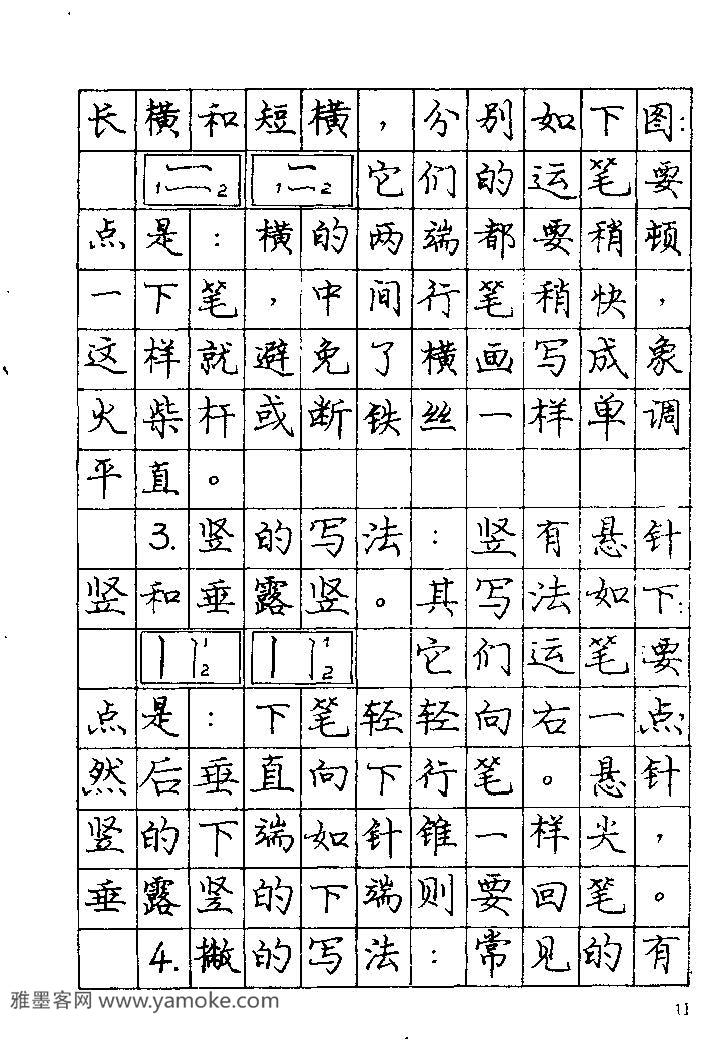 长横和短横，分别如下图：
1 2 1 2 它们的运笔要
点是：横的两端都要稍顿
一下笔，中间行笔稍快，
这样就避免了横画写成象
火柴杆或断铁丝一样单调
平直。
3.竖的写法：竖有悬针
竖和垂露竖。其写法如下：
1 2 1 2 它们运笔要
点是：下笔轻轻向右一点
然后垂直向下行笔。悬针
竖的下端如针锥一样尖，
垂露竖的下端则要回笔。
4.撇的写法：常见的有
雅墨客网 www.yamoke.com
11